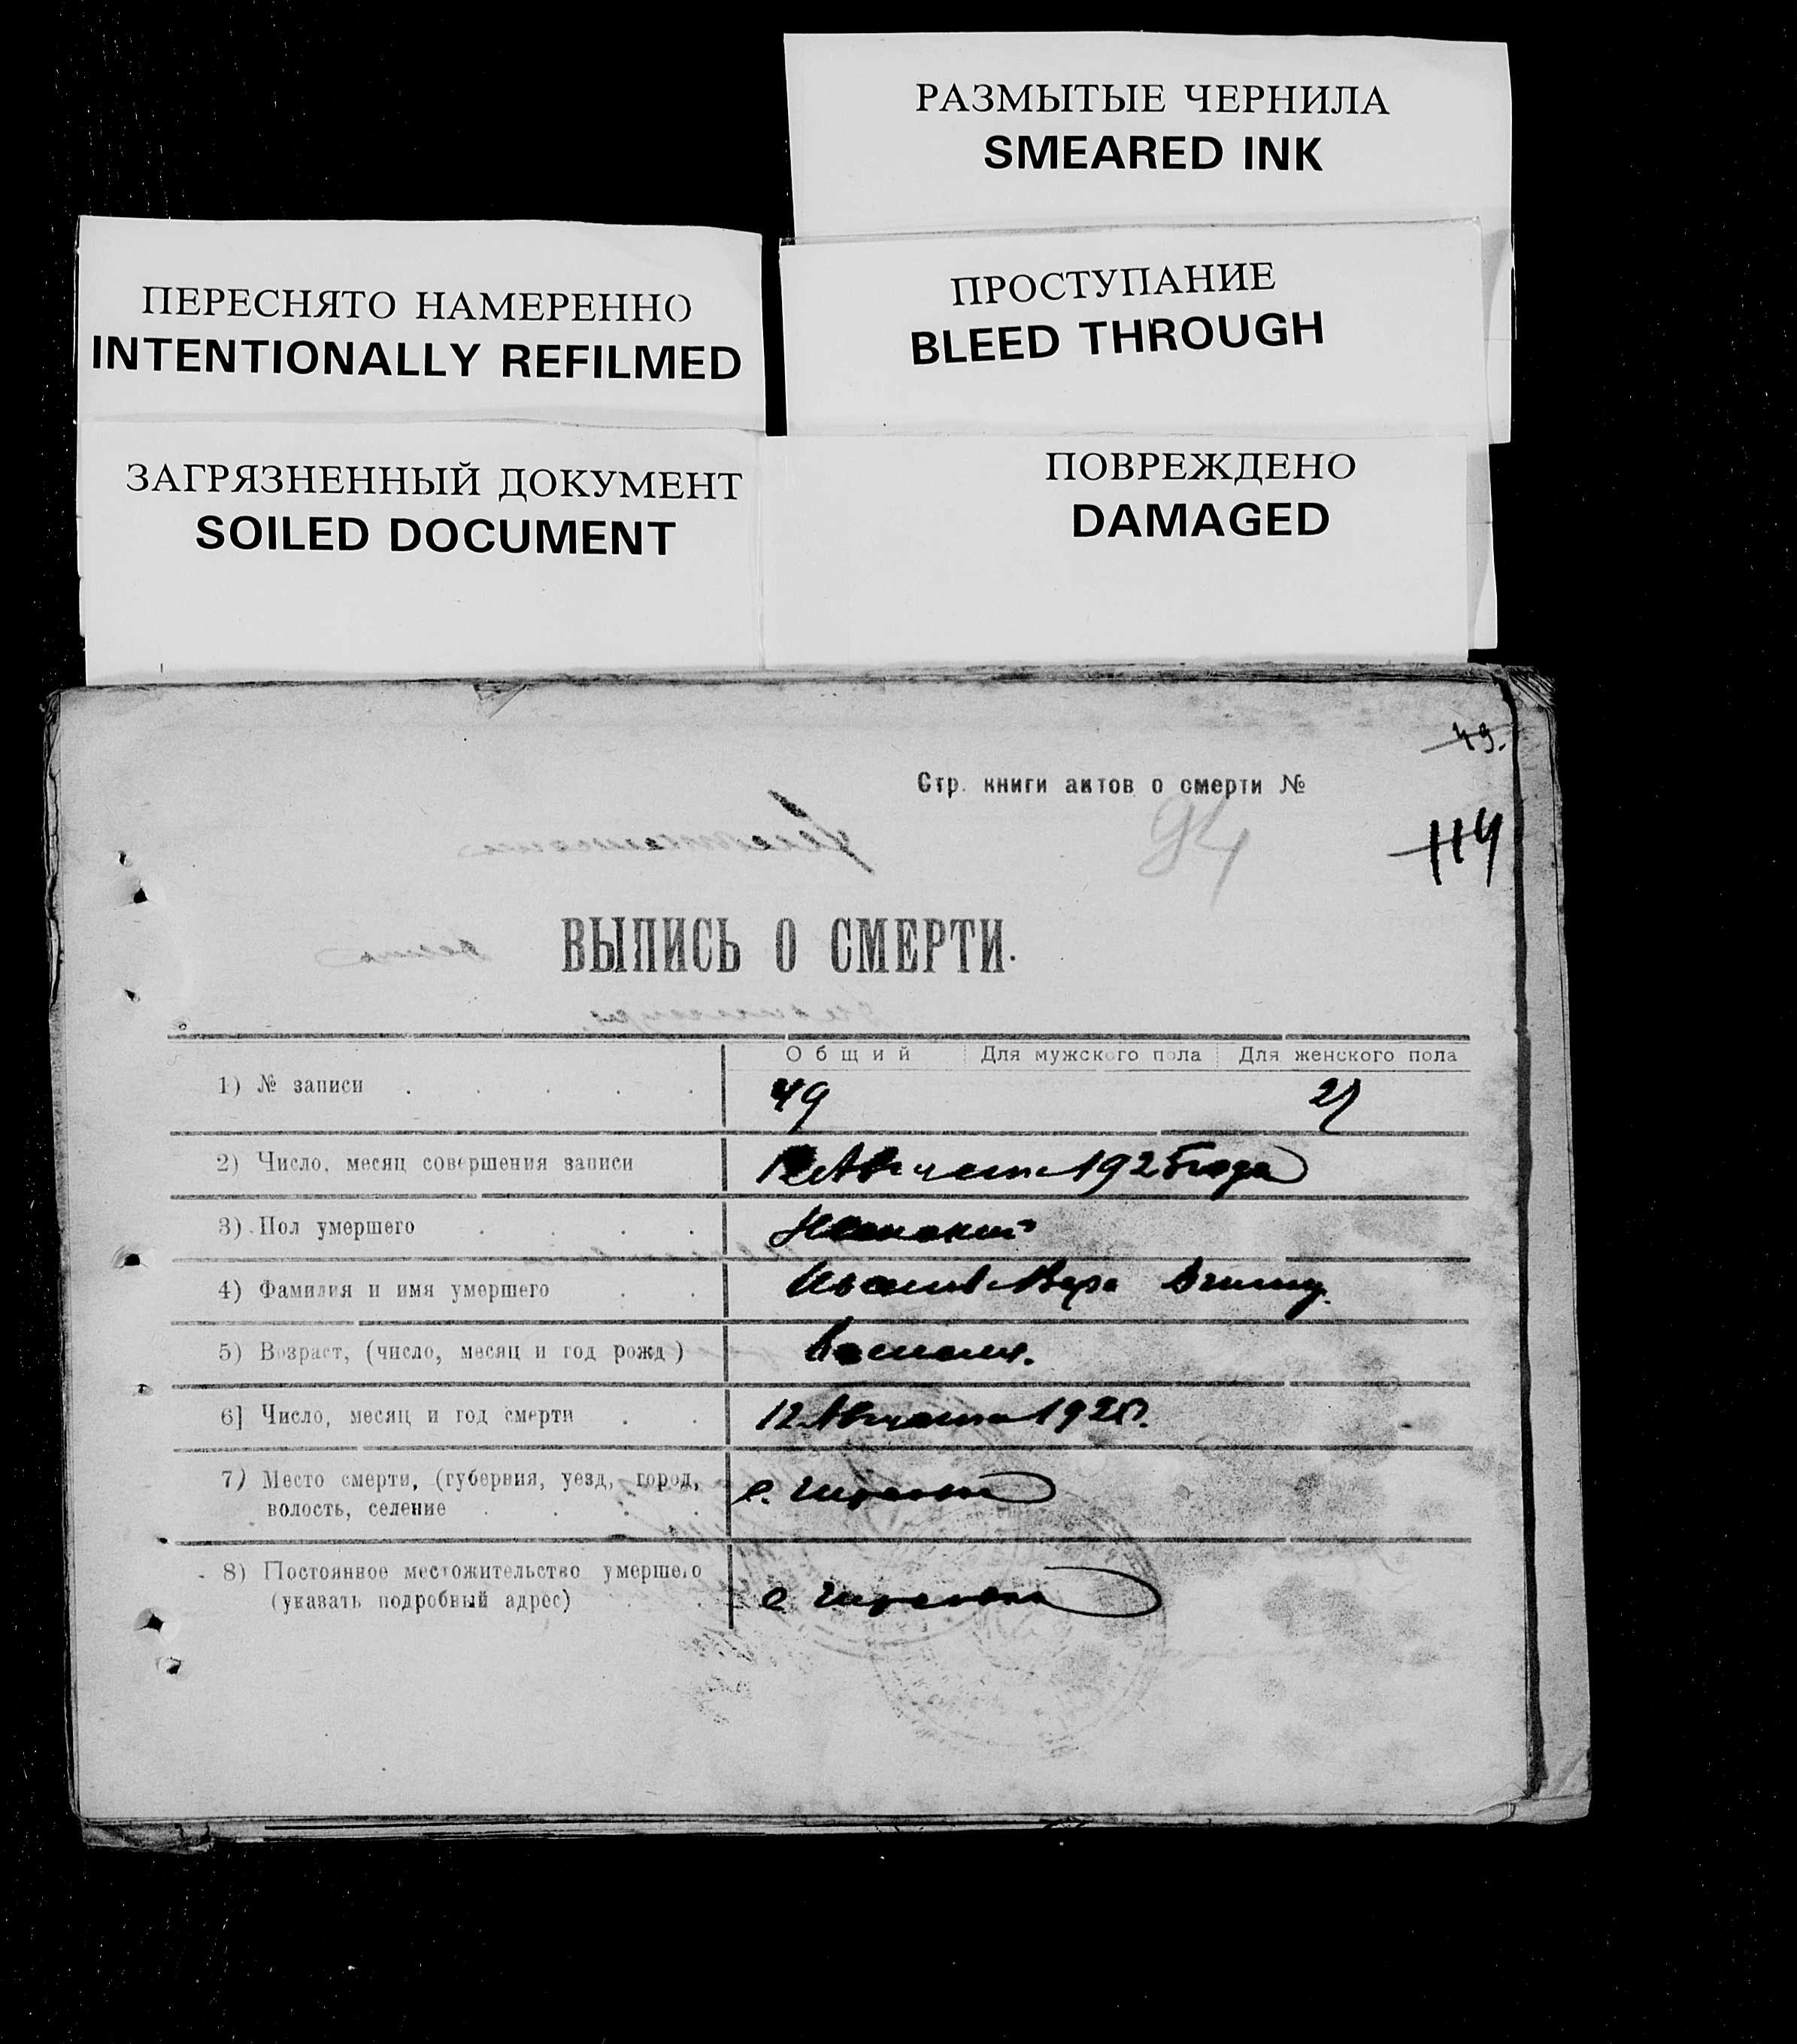 РАЗМЫТЫЕ ЧЕРНИЛА
SMEARED INK
ПЕРЕСНЯТО НАМЕРЕННО
INTENTIONALLY REFILMED
ПРОСТУПАНИЕ
BLEED THROUGH
ЗАГРЯЗНЕННЫЙ ДОКУМЕНТ
SOILED DOCUMENT
ПОВРЕЖДЕНО
DAMAGED
49.
Стр. книги актов о смерти №
94
114
ВЫПИСЬ О СМЕРТИ.
Общий Для мужского пола Для женского пола
1) № записи 49 21
2) Число, месяц совершения записи Августа 1925 года
3) Пол умершего Женский
4) Фамилия и имя умершего Вера
5) Возраст, (число, месяц и год рожд)
6] Число, месяц и год смерти 12 Августа 1925.
7) Место смерти, (губерния, уезд, город,
волость, селение с.
8) Постоянное местожительство умершего
(указать подробный адрес) с.